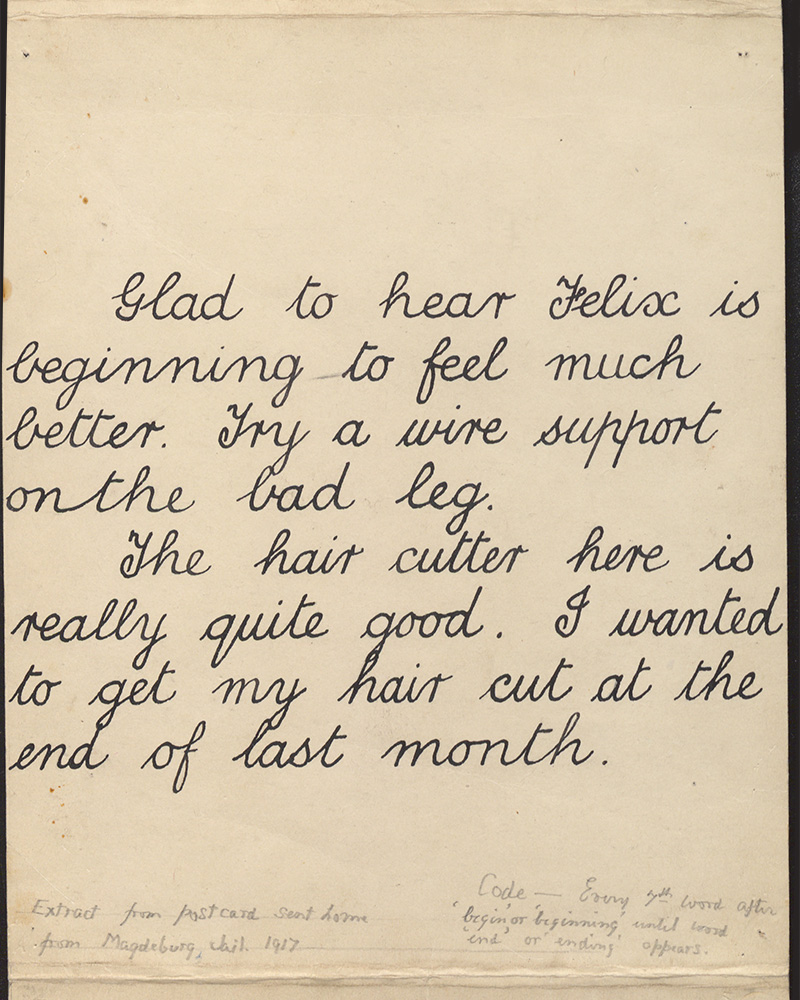 Glad to hear Felix is
beginning to feel much
better. Try a wire support
on the bad leg.
The hair cutter here is
really quite good. I wanted
to get my hair cut at the
end of last month.
Extract from postcard sent home
from Magdeburg Jail. 1917
Code — Every 7th word after
'begin' or 'beginning' until word
'end' or 'ending' appears.